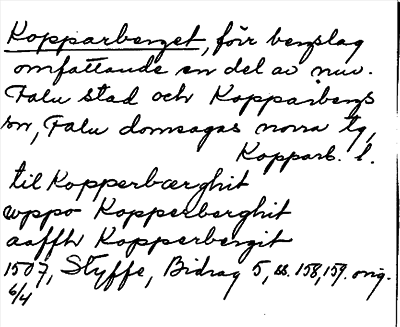 Kopparberget, förr bergslag
omfattande en del av nuv.
Falu stad och Kopparbergs
sn, Falu domsagas norra tg,
Kopparb. l.
til Kopperbærghit
uppo Kopperberghit
aaffth Kopperbergit
1507, Styffe, Bidrag 5, ss. 158, 159. orig.
6/4